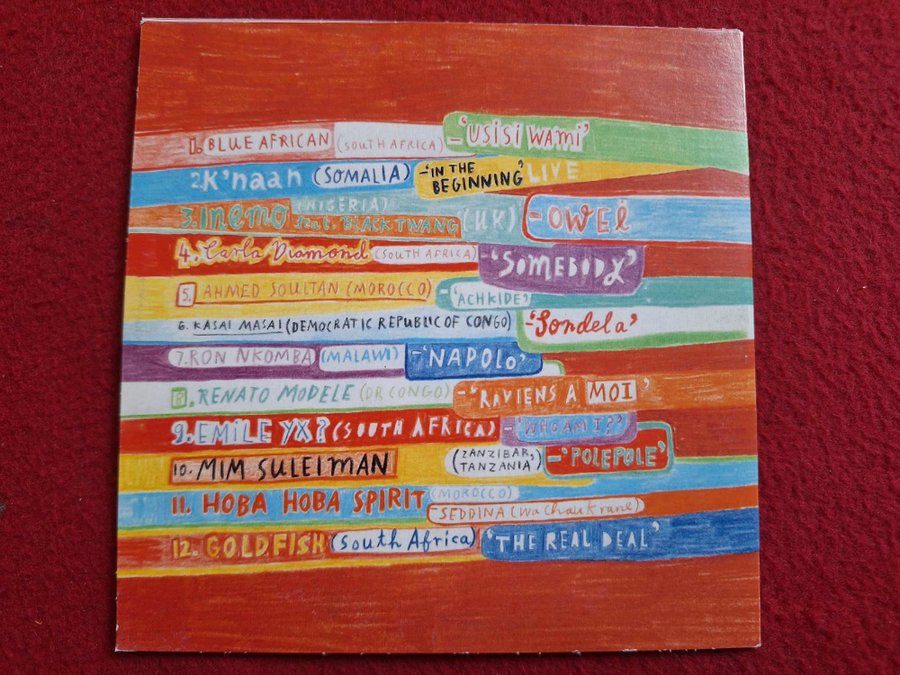 1. BLUE AFRICAN (SOUTH AFRICA) - 'USISI WAMI'
2. K'naan (SOMALIA) - 'IN THE BEGINNING' LIVE
3. Inemo (NIGERIA) feat. BLACK TWANG (UK) - 'OWEI'
4. Carla Diamond (SOUTH AFRICA) - 'SOMEBODY'
5. AHMED SOULTAN (MOROCCO) - 'ACHKIDE'
6. KASAI MASAI (DEMOCRATIC REPUBLIC OF CONGO) - 'Sondela'
7. RON NKOMBA (MALAWI) - 'NAPOLO'
8. RENATO MODELE (DR CONGO) - 'RAVIENS A MOI'
9. EMILE YX? (SOUTH AFRICA) - 'WHO AM I?'
10. MIM SULEIMAN (ZANZIBAR, TANZANIA) - 'POLEPOLE'
11. HOBA HOBA SPIRIT (MOROCCO) - SEDDINA (Wa Chaukrane)
12. GOLDFISH (South Africa) 'THE REAL DEAL'